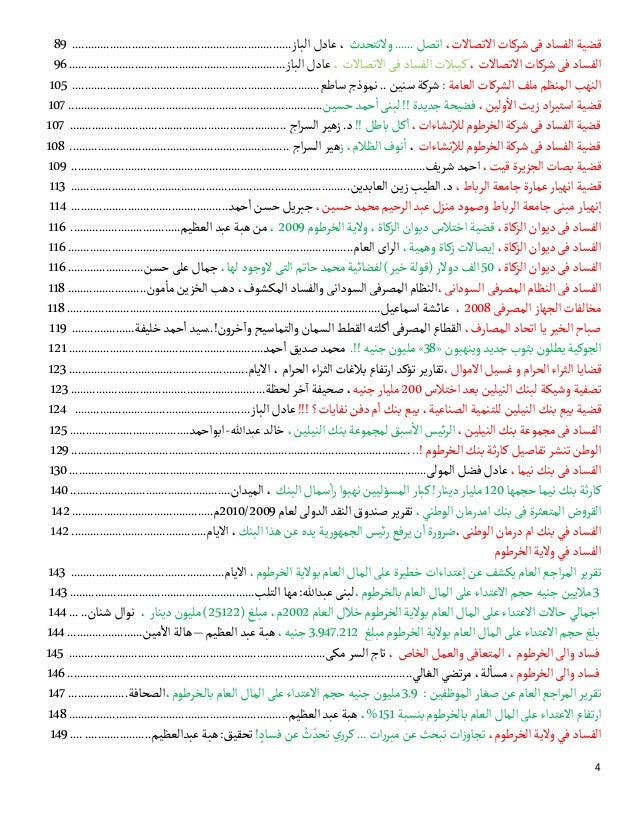 قضية الفساد فى شركات الاتصالات ، اتصل ...... ولاتتحدث ، عادل الباز ........ 89
الفساد فى شركات الاتصالات ، كيبلات الفساد فى الاتصالات ، عادل الباز ........ 96
النهب المنظم ملف الشركات العامة : شركة سنين .. نموذج ساطع ........ 105
قضية استيراد زيت الأولين ، فضيحة جديدة !! لبنى أحمد حسين ........ 107
قضية الفساد فى شركة الخرطوم للإنشاءات ، أكل باطل !! د. زهير السراج ........ 107
قضية الفساد فى شركة الخرطوم للإنشاءات ، أنوف الظلام ، زهير السراج ........ 108
قضية بصات الجزيرة قيت ، احمد شريف ........ 109
قضية انهيار عمارة جامعة الرباط ، د. الطيب زين العابدين ........ 113
إنهيار مبنى جامعة الرباط وصمود منزل عبد الرحيم محمد حسين ، جبريل حسن أحمد ........ 114
الفساد فى ديوان الزكاة ، قضية اختلاس ديوان الزكاة ، ولاية الخرطوم 2009 ، من هبة عبد العظيم ........ 116
الفساد فى ديوان الزكاة ، إيصالات زكاة وهمية ، الراى العام ........ 116
الفساد فى ديوان الزكاة ، 50 الف دولار (قولة خير) لفضائية محمد حاتم التى لاوجود لها ، جمال على حسن ........ 116
الفساد فى النظام المصرفى السودانى ،النظام المصرفى السودانى والفساد المكشوف ، دهب الخزين مأمون ........ 118
مخالفات الجهاز المصرفى 2008 ، عائشة اسماعيل ........ 118
صباح الخير يا اتحاد المصارف ، القطاع المصرفى أكلته القطط السمان والتماسيح وآخرون!..سيد أحمد خليفة ........ 119
الجوكية يطلون بثوب جديد وينهبون «38» مليون جنيه !!. محمد صديق أحمد ........ 121
قضايا الثراء الحرام و غسيل الاموال ،تقارير تؤكد ارتفاع بلاغات الثراء الحرام ، الايام ........ 123
تصفية وشيكة لبنك النيلين بعد اختلاس 200 مليار جنيه ، صحيفة آخر لحظة ........ 123
قضية بيع بنك النيلين للتنمية الصناعية ، بيع بنك أم دفن نفايات؟ !!! عادل الباز ........ 124
الفساد فى مجموعة بنك النيلين ، الرئيس الأسبق لمجموعة بنك النيلين ، خالد عبدالله-ابواحمد ........ 125
الوطن تنشر تفاصيل كارثة بنك الخرطوم !........ 129
الفساد فى بنك نيما ، عادل فضل المولى ........ 130
كارثة بنك نيما حجمها 120 مليار دينار ! كبار المسؤليين نهبوا رأسمال البنك ، الميدان ........ 140
القروض المتعثرة فى بنك امدرمان الوطني ، تقرير صندوق النقد الدولى لعام 2010/2009م ........ 142
الفساد في بنك ام درمان الوطنى ،ضرورة أن يرفع رئيس الجمهورية يده عن هذا البنك ، الايام ........ 142
الفساد في ولاية الخرطوم
تقرير المراجع العام يكشف عن إعتداءات خطيرة على المال العام بولاية الخرطوم ، الايام ........ 143
3 ملايين جنيه حجم الاعتداء على المال العام بالخرطوم ،لبنى عبدالله: مها التلب ........ 143
اجمالي حالات الاعتداء على المال العام بولاية الخرطوم خلال العام 2002م ، مبلغ (25122) مليون دينار ، نوال شنان ........ 144
بلغ حجم الاعتداء على المال العام بولاية الخرطوم مبلغ 3.947.212 جنيه ، هبة عبد العظيم – هالة الأمين ........ 144
فساد والى الخرطوم ، المتعافى والعمل الخاص ، تاج السر مكى ........ 145
فساد والى الخرطوم ، مسألة ، مرتضي الغالي ........ 146
تقرير المراجع العام عن صغار الموظفين : 3.9 مليون جنيه حجم الاعتداء على المال العام بالخرطوم ،الصحافة ........ 147
ارتفاع الاعتداء على المال العام بالخرطوم بنسبة 151% ، هبة عبد العظيم ........ 148
الفساد في ولاية الخرطوم ، تجاوزات تبحث عن مبررات ... كرري تحدّثُ عن فسادٍ! تحقيق: هبة عبدالعظيم ........ 149
4